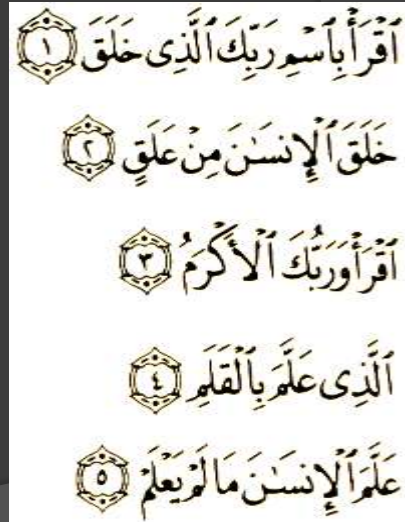 ٱقْرَأْ بِٱسْمِ رَبِّكَ ٱلَّذِى خَلَقَ ١
خَلَقَ ٱلْإِنسَـٰنَ مِنْ عَلَقٍ ٢
ٱقْرَأْ وَرَبُّكَ ٱلْأَكْرَمُ ٣
ٱلَّذِى عَلَّمَ بِٱلْقَلَمِ ٤
عَلَّمَ ٱلْإِنسَـٰنَ مَا لَمْ يَعْلَمْ ٥